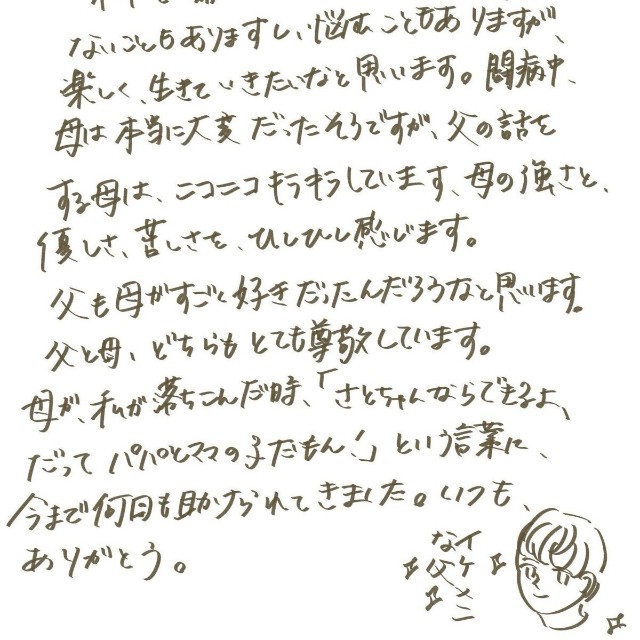 ないこともありますしい悩むこともありますが、
楽しく、生きていきたいなと思います。闘病中、
母は本当に大変だったそうですが、父の話を
する母は、ニコニコキラキラしています、母の強さと、
優しさ、苦しさを、ひしひし感じます。
父も母がすごく好きだったんだろうなと思います。
父と母、どちらもとても尊敬しています。
母が、私が落ちこんだ時、「さとちゃんならできるよ、
だってパパとママの子だもん!」という言葉に、
今まで何回も助けられてきました。いつも、
ありがとう。
イケメン
な父